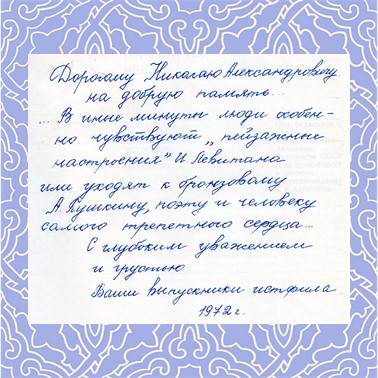 Дорогому Николаю Александровичу
на добрую память...
... В иные минуты люди особен-
но чувствуют „пейзажные
настроения" И. Левитана
или уходят к бронзовому
А. Пушкину, поэту и человеку
самого трепетного сердца...
С глубоким уважением
и грустью
Ваши выпускники истфила
1972 г.